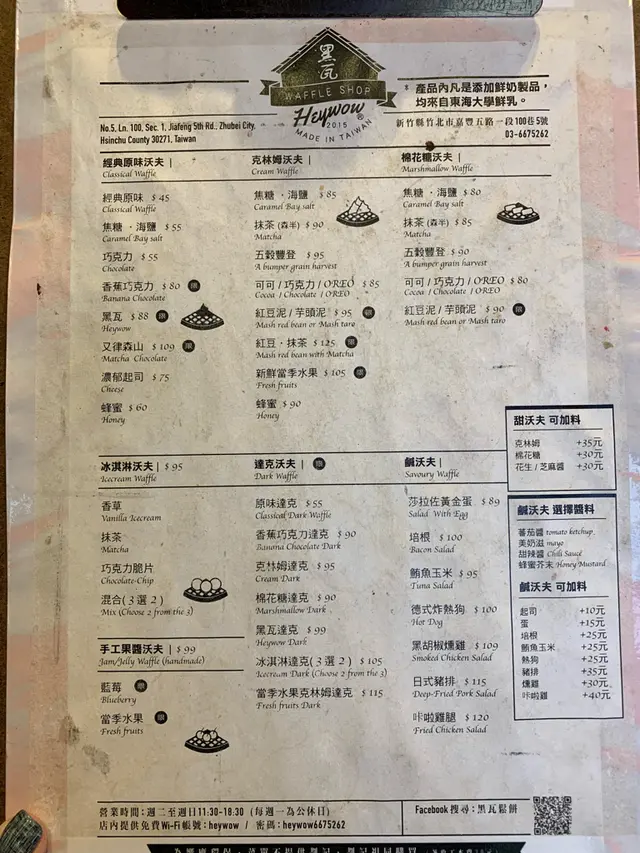 黑瓦
WAFFLE SHOP
Heywow®
2015
MADE IN TAIWAN
* 產品內凡是添加鮮奶製品,
均來自東海大學鮮乳。
No.5, Ln. 100, Sec. 1, Jiafeng 5th Rd., Zhubei City,
Hsinchu County 30271, Taiwan
新竹縣竹北市嘉豐五路一段100巷5號
03-6675262
經典原味沃夫 |
Classical Waffle
經典原味 $ 45
Classical Waffle
焦糖・海鹽 $ 55
Caramel Bay salt
巧克力 $ 55
Chocolate
香蕉巧克力 $ 80 限
Banana Chocolate
黑瓦 $ 88 限
Heywow
又律森山 $ 109 限
Matcha Chocolate
濃郁起司 $ 75
Cheese
蜂蜜 $ 60
Honey
克林姆沃夫 |
Cream Waffle
焦糖・海鹽 $ 85
Caramel Bay salt
抹茶 (森半) $ 90
Matcha
五穀豐登 $ 95
A bumper grain harvest
可可 / 巧克力 / OREO $ 85
Cocoa / Chocolate / OREO
紅豆泥 / 芋頭泥 $ 95 限
Mash red bean or Mash taro
紅豆・抹茶 $ 125 限
Mash red bean with Matcha
新鮮當季水果 $ 105 限
Fresh fruits
蜂蜜 $ 90
Honey
棉花糖沃夫 |
Marshmallow Waffle
焦糖・海鹽 $ 80
Caramel Bay salt
抹茶 (森半) $ 85
Matcha
五穀豐登 $ 90
A bumper grain harvest
可可 / 巧克力 / OREO $ 80
Cocoa / Chocolate / OREO
紅豆泥 / 芋頭泥 $ 90 限
Mash red bean or Mash taro
甜沃夫 可加料
克林姆 +35元
棉花糖 +30元
花生 / 芝麻醬 +30元
冰淇淋沃夫 | $ 95
Icecream Waffle
香草
Vanilla Icecream
抹茶
Matcha
巧克力脆片
Chocolate-Chip
混合( 3 選 2 )
Mix (Choose 2 from the 3)
手工果醬沃夫 | $ 99
Jam/Jelly Waffle (handmade)
藍莓 限
Blueberry
當季水果 限
Fresh fruits
達克沃夫 | 限
Dark Waffle
原味達克 $ 55
Classical Dark Waffle
香蕉巧克力達克 $ 90
Banana Chocolate Dark
克林姆達克 $ 95
Cream Dark
棉花糖達克 $ 90
Marshmallow Dark
黑瓦達克 $ 99
Heywow Dark
冰淇淋達克( 3 選 2 ) $ 105
Icecream Dark (Choose 2 from the 3)
當季水果克林姆達克 $ 115
Fresh fruits Dark
鹹沃夫 |
Savoury Waffle
莎拉佐黃金蛋 $ 89
Salad With Egg
培根 $ 100
Bacon Salad
鮪魚玉米 $ 95
Tuna Salad
德式炸熱狗 $ 100
Hot Dog
黑胡椒燻雞 $ 109
Smoked Chicken Salad
日式豬排 $ 115
Deep-Fried Pork Salad
咔啦雞腿 $ 120
Fried Chicken Salad
鹹沃夫 選擇醬料
蕃茄醬 tomato ketchup
美奶滋 mayo
甜辣醬 Chili Sauce
蜂蜜芥末 Honey Mustard
鹹沃夫 可加料
起司 +10元
蛋 +15元
培根 +25元
鮪魚玉米 +25元
熱狗 +25元
豬排 +35元
燻雞 +30元
咔啦雞 +40元
營業時間:週二至週日11:30-18:30 (每週一為公休日)
店內提供免費Wi-Fi帳號:heywow / 密碼:heywow6675262
Facebook 搜尋:黑瓦鬆餅